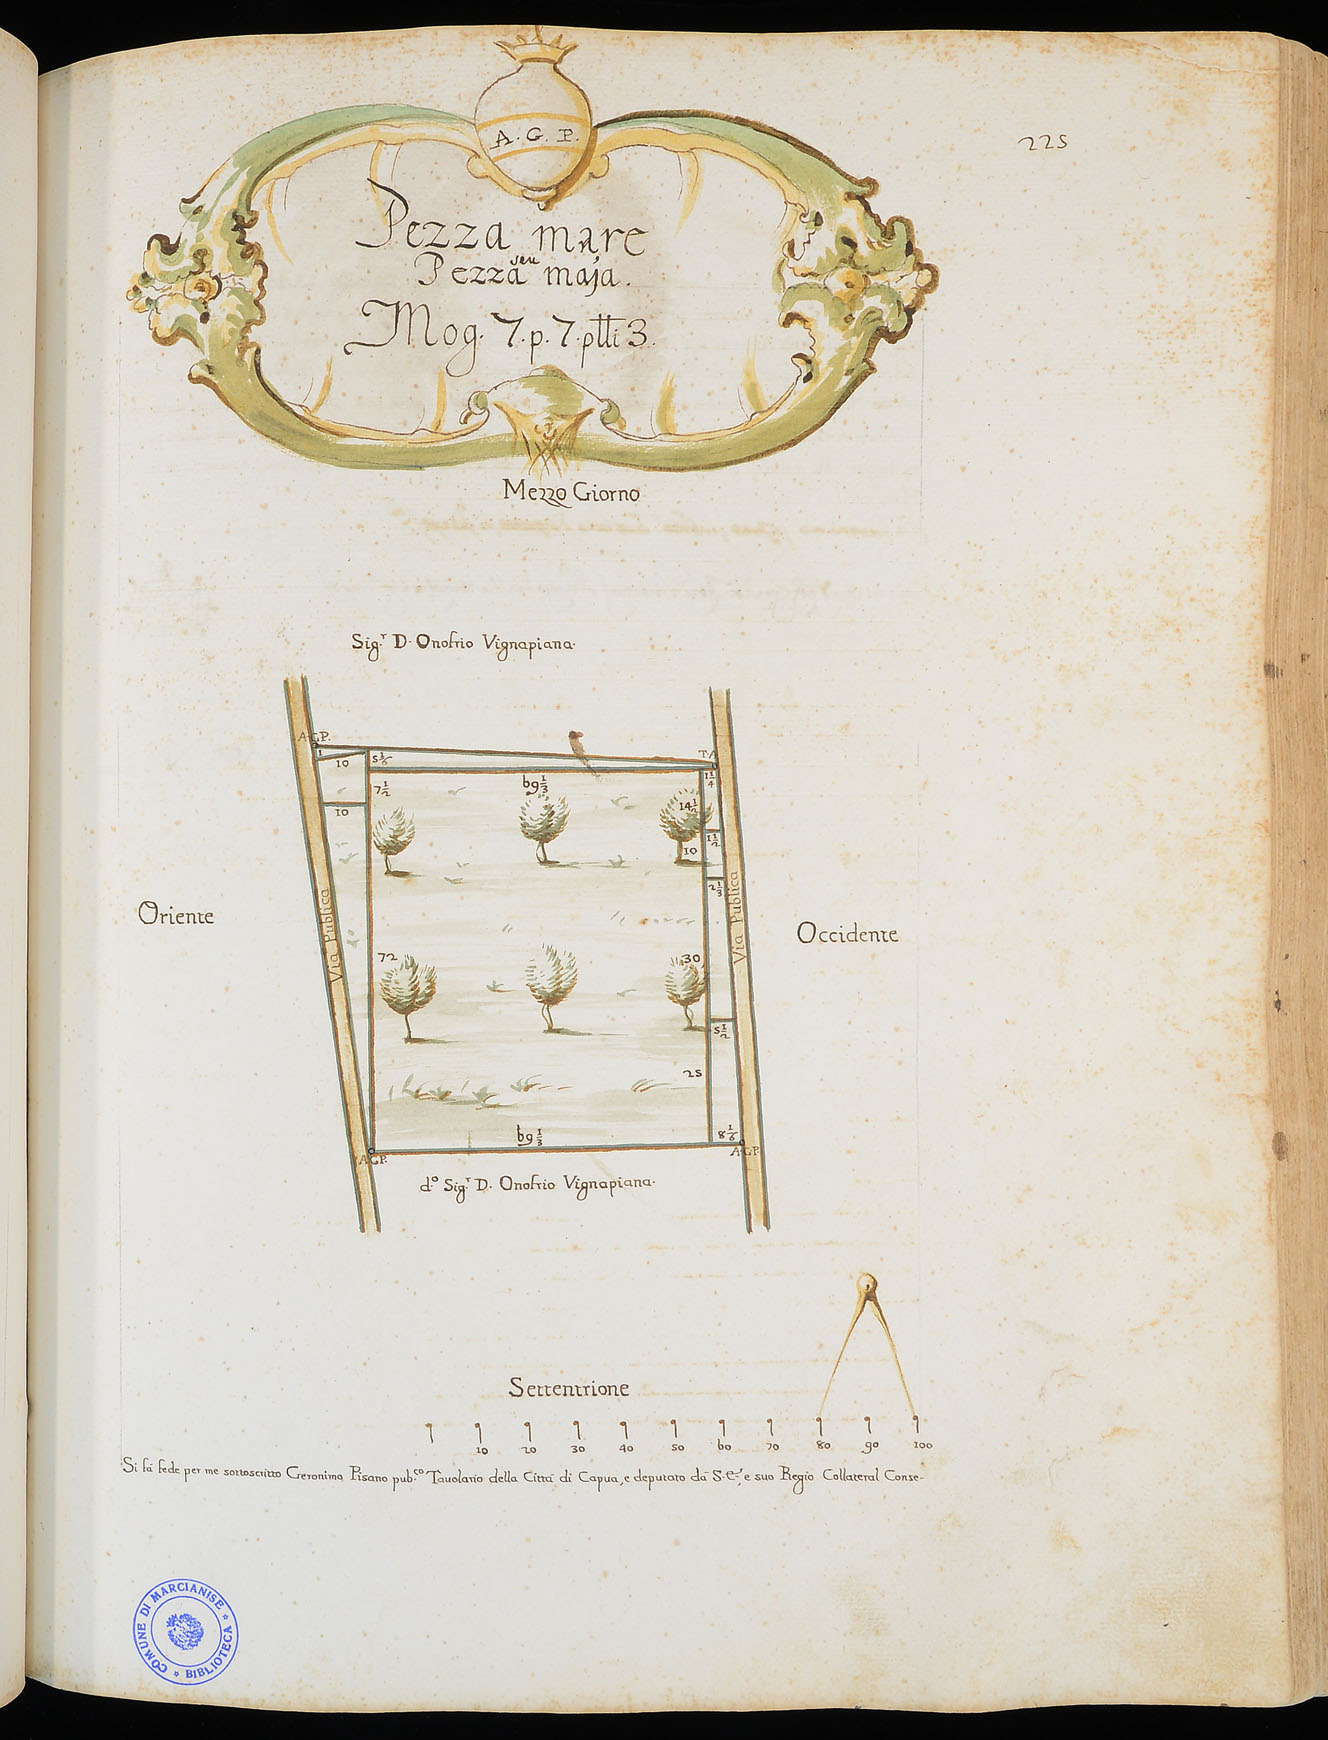 225
A. G. P.
Pezza mare
seu
Pezza maja.
Mog. 7. p. 7. ptti 3.
Mezzo Giorno
Sig.r D. Onofrio Vignapiana.
A.G.P.
T.A
1
10
5 1/6
1 1/4
7 1/2
69 1/3
14 1/2
10
1 1/2
10
2 1/3
Via Publica
Via Publica
Oriente
Occidente
72
30
5 1/2
25
69 1/3
8 1/6
A.G.P.
A.G.P.
d.o Sig.r D. Onofrio Vignapiana.
Settentrione
10 20 30 40 50 60 70 80 90 100
Si fà fede per me sottoscritto Geronimo Pisano pub.co Tavolario della Città di Capua, e deputato dà S. E., e suo Regio Collateral Conse-
COMUNE DI MARCIANISE * BIBLIOTECA *